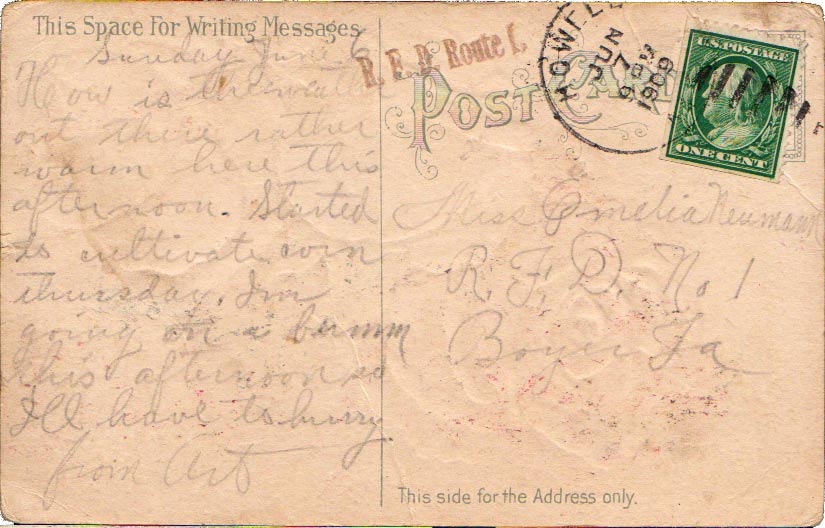 This Space For Writing Messages
Sunday June 6
How is the weather
out there rather
warm here this
afternoon. Started
to cultivate corn
thursday. I'm
going on a bumm
this afternoon so
I'll have to hurry.
from Art
R. F. D. Route 1.
POST CARD
HOWELL
JUN
7
1909
U.S. POSTAGE
ONE CENT
Miss Emelia Neumann
R. F. D. No 1
Boyer Ia
This side for the Address only.